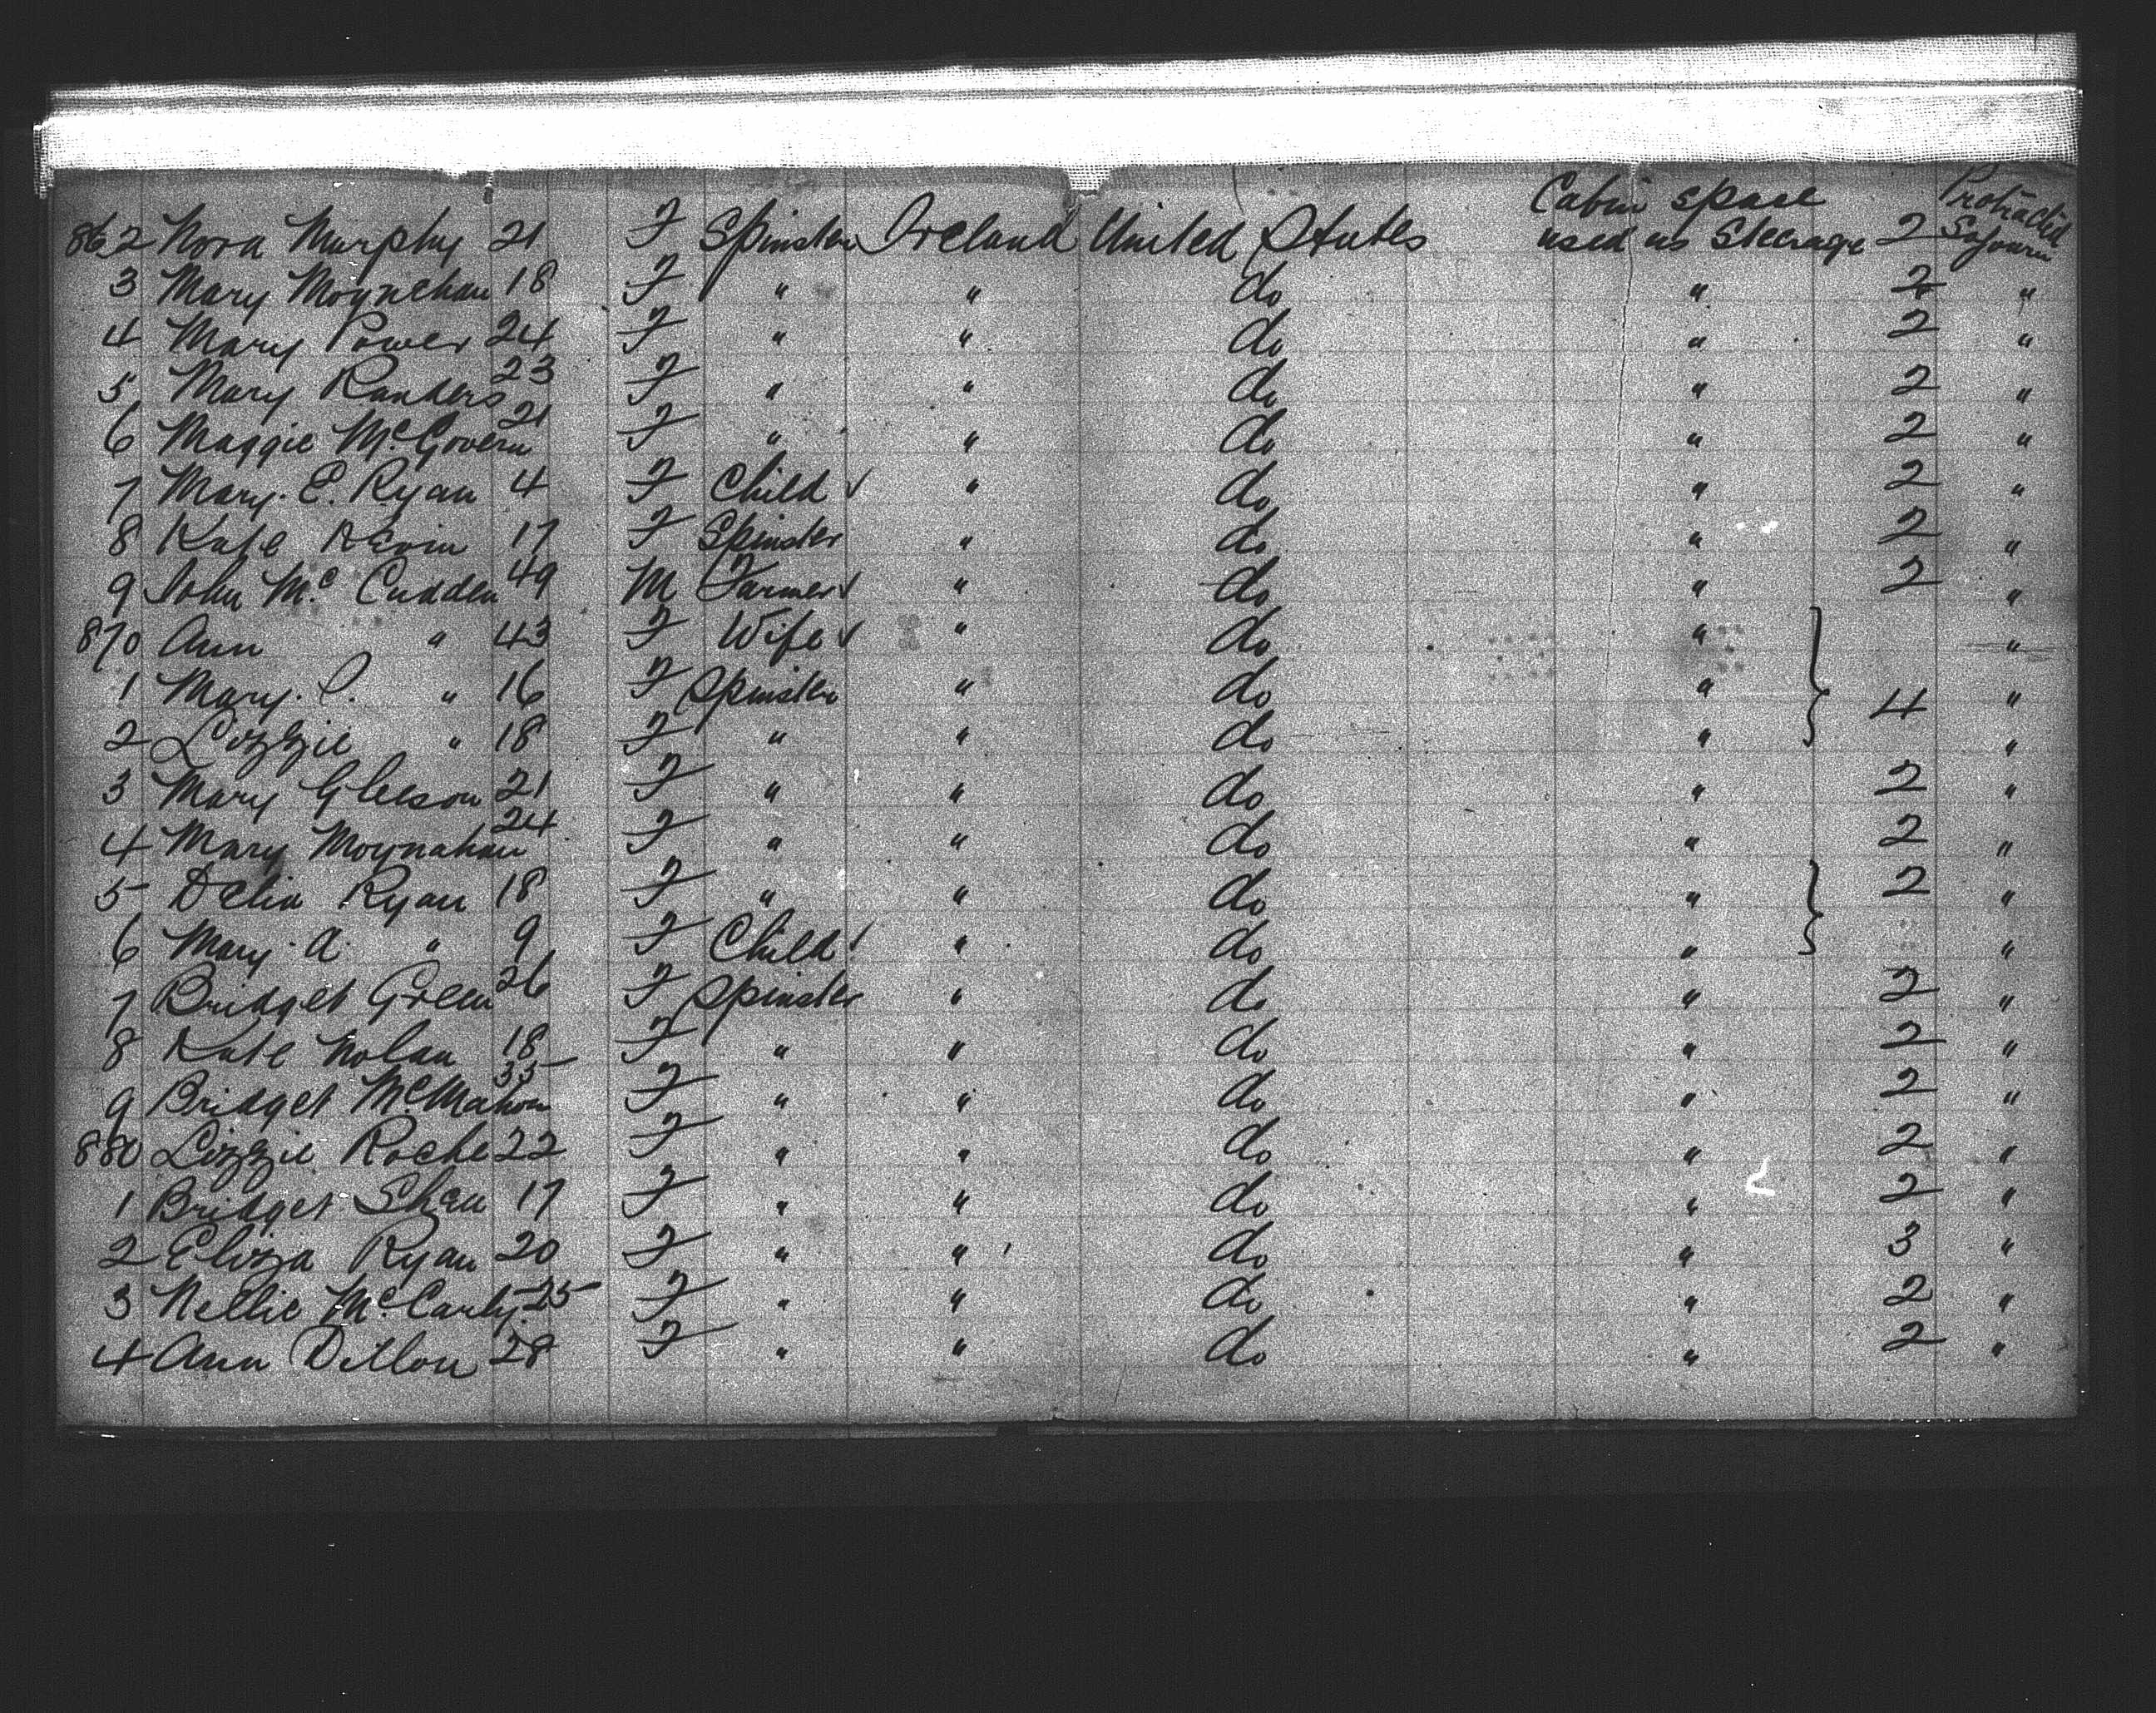 862 Nora Murphy 21 F Spinster Ireland United States Cabin space used as Steerage 2 Protracted Sojourn
3 Mary Moynehan 18 F " " do " 2 "
4 Mary Power 24 F " " do " 2 "
5 Mary Randers 23 F " " do " 2 "
6 Maggie McGovern 21 F " " do " 2 "
7 Mary. E. Ryan 4 F Child ✓ " do " 2 "
8 Kate 17 F Spinster " do " 2 "
9 John Mc Cudden 49 M Farmer ✓ " do " 2 "
870 Ann " 43 F Wife ✓ " do " "
1 Mary. " 16 F Spinster " do " 4 "
2 Lizzie " 18 F " " do " "
3 Mary Gleeson 21 F " " do " 2 "
4 Mary Moynahan 24 F " " do " 2 "
5 Delia Ryan 18 F " " do " 2 "
6 Mary. A. " 9 F Child ✓ " do " "
7 Bridget Green 26 F Spinster " do " 2 "
8 Kate Nolan 18 F " " do " 2 "
9 Bridget McMahon 35 F " " do " 2 "
880 Lizzie Roche 22 F " " do " 2 "
1 Bridget Shea 17 F " " do " 2 "
2 Eliza Ryan 20 F " " do " 3 "
3 Nellie McCarty 25 F " " do " 2 "
4 Ann Dillon 28 F " " do " 2 "